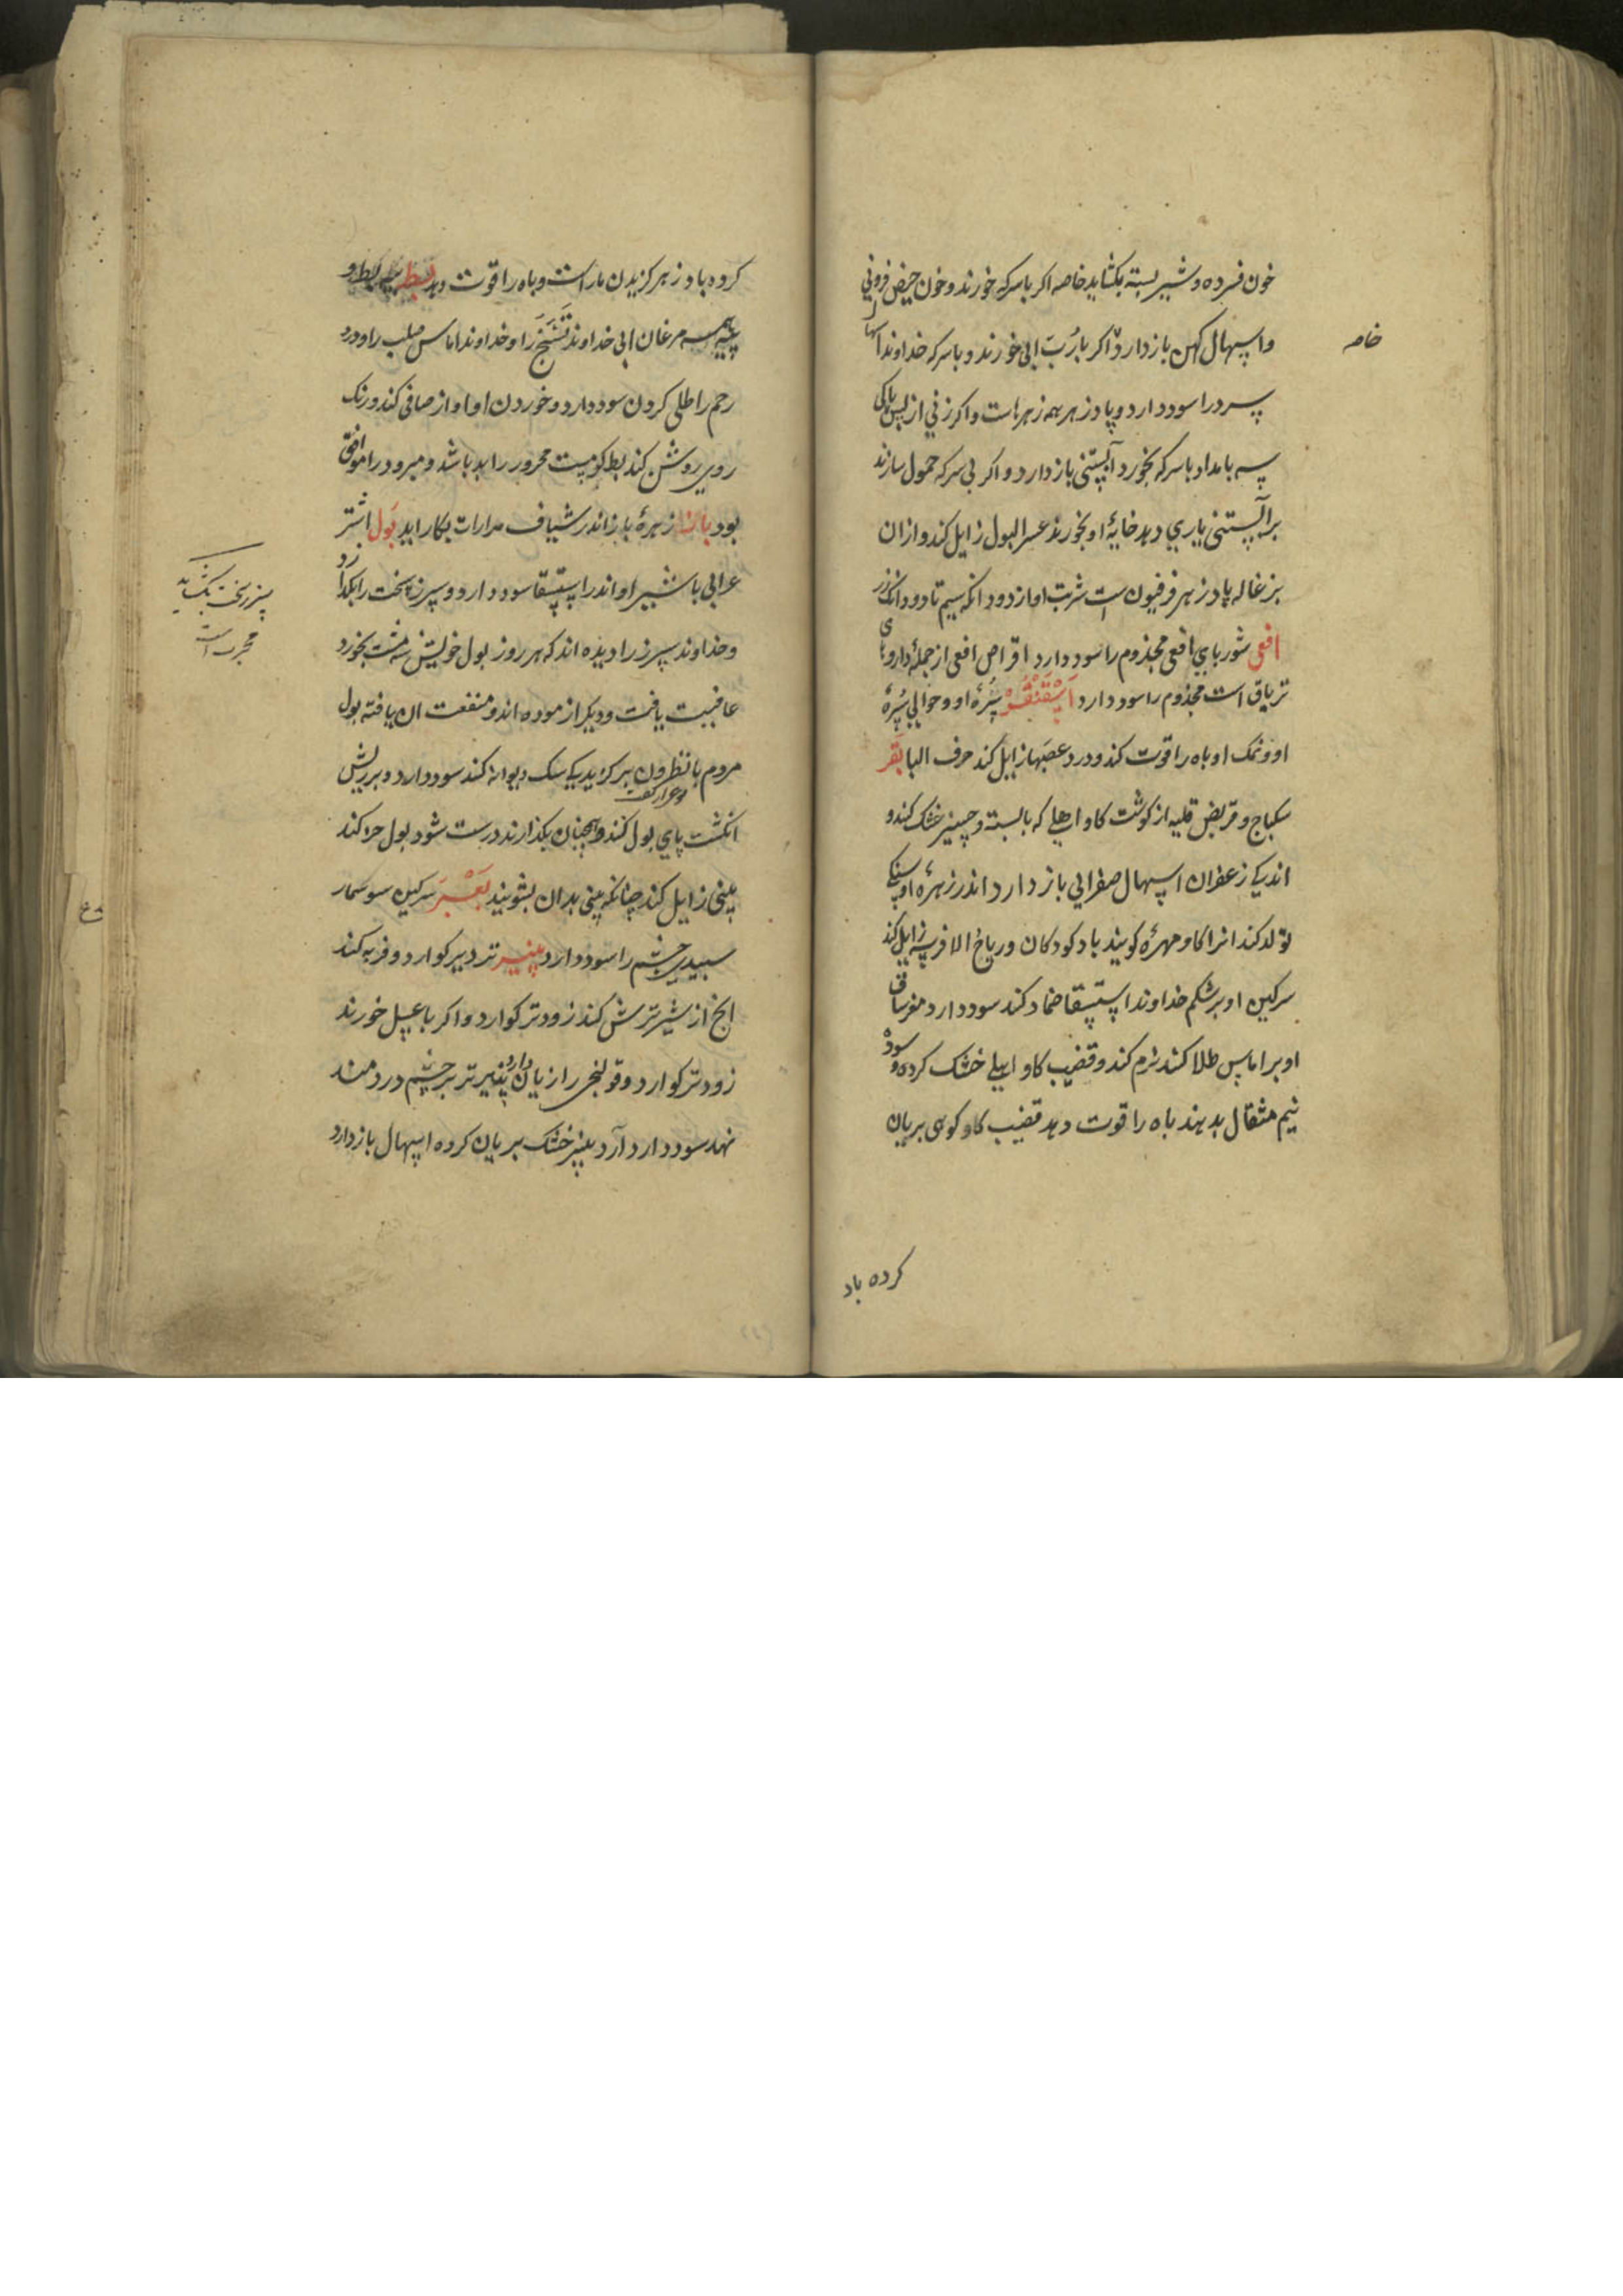 خون فسرده و شیر بسته بکشاید خاصه اکر باسرکه خورند و خون حیض فزونی
واسهال کهن باز دارد اکر با رُبّ ابی خورند و باسرکه خداوند اسهال
خاصه
پسر درا سود دارد و پادزهر همه زهرهاست واکر زنی از پس پاکی
سه بامداد باسرکه بخورد آبستنی باز دارد و اکر بی سرکه حمول سازند
برآبستنی یاری دهد خایهٔ او بخورند عسر البول زایل کند و ازان
بزغاله پادزهر فرفیون ست شربت او از دو دانکه سیم تا دو دانک زر
افعی شوربای افعی مجذوم را سود دارد اقراص افعی از جملهٔ داروهای
تریاق است مجذوم را سود دارد اسقنقور سُرّهٔ او و حوالی سُرّهٔ
او و نمک او باه را قوت کند و درد عصبها زایل کند حرف البا بقر
سکباج و قریض قلیه از کوشت کاو اهلی که بالسته و چیز خشک کند و
اندکی زعفران اسهال صفرایی باز دارد اندر زهرهٔ او سنکی
تولد کند انرا کاو مهره کویند باد کودکان و ریاح الافرسه زایل کند
سرکین او برشکم خداوند استسقا ضماد کند سود دارد مغز ساق
او بر اماس طلا کنند نرم کند و قضیب کاو اهلی خشک کرده و سوده
نیم مثقال بدهند باه را قوت دهد قضیب کاو کوهی بریان
کرده باد
کرده بادزهر کزیدن مار است و باه را قوت دهد بط پیه بط و
پیه همه مرغان ابی خداوند تشنج را و خداوند اماس صلب را و درد
رحم را طلی کردن سود دارد و خوردن او اواز صافی کند و رنک
روی روشن کند بط کوشت محرور را بد باشد و مبرود را موافق
بود باز زهرهٔ باز اندر شیاف مرارات بکار اید بول اشتر
عرابی با شیر او اندر استسقا سود دارد و سپرز سخت را بکدازد
و خداوند سپرز را دیده اند که هر روز بول خویش سه مشت بخورد
عافیت یافت و دیکر ازموده اند و منفعت ان یافته بول
مردم با نطرون بر کزیدکی سک دیوانه کند سود دارد و بر ریش
انکشت پای بول کنند و همچنان بکذارند درست شود بول خر کند
بینی زایل کند چنانکه بینی بدان بشویند بعر سرکین سوسمار
سبیدی چشم را سود دارد پنیر تر دیر کوارد و فربه کند
انج از شیر ترش کند زودتر کوارد و اکر با عسل خورند
زودتر کوارد و قولنج را زیان دارد پنیر تر بر چشم دردمند
نهد سود دارد آرد پنیر خشک بریان کرده اسهال باز دارد
مجرب است